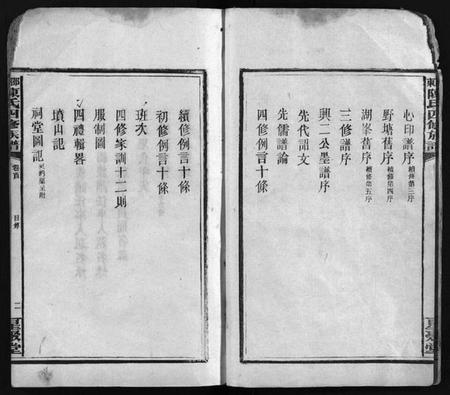 陳氏四修族譜
心印譜序 續修第三序
野塘舊序 續修第四序
湖峯舊序 續修第五序
三修譜序
興二公墨譜序
先代誥文
先儒譜論
四修例言十條
續修例言十條
初修例言十條
班次
四修家訓十二則
服制圖
四禮輯畧
墳山記
祠堂圖記
陳氏四修族譜
卷首
目錄
二
星聚堂